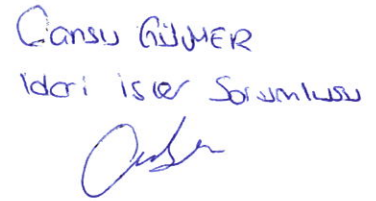 Cansu GÜLMER
İdari işler Sorumlusu